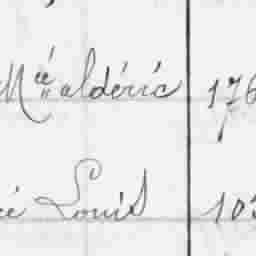 Mcé aldéric 176
cé Louis 103